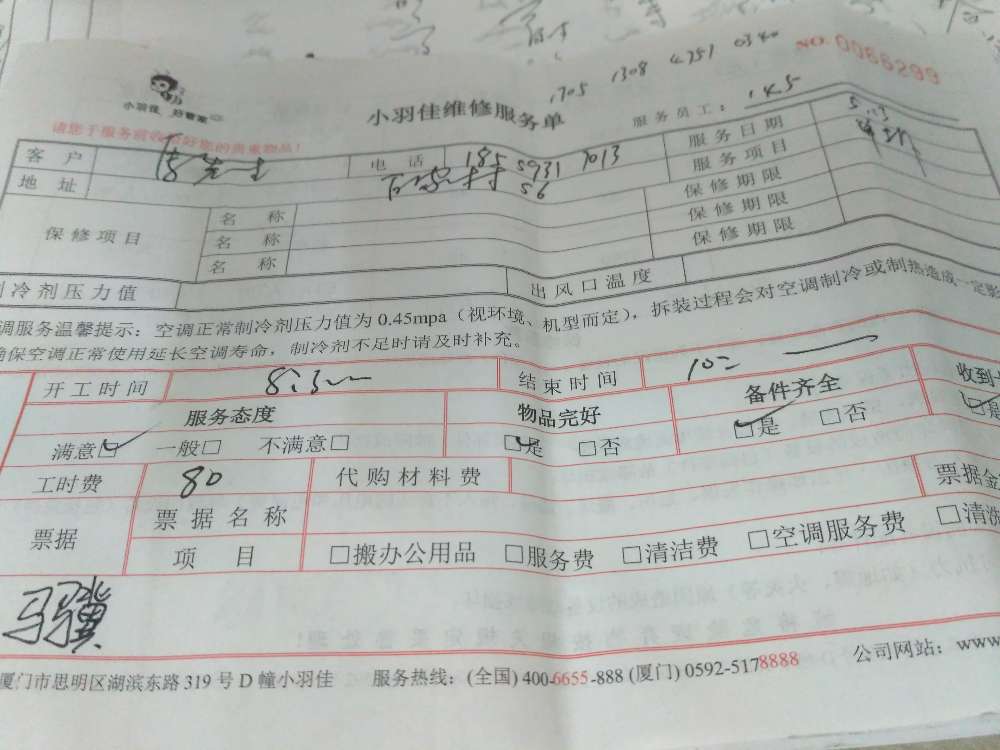 1705 1308 4751 0340
NO. 0066299
小羽佳 好管家
小羽佳维修服务单
服务员工：145
请您于服务前收藏好您的贵重物品！
客户 电话 185 5931 7013 服务日期 5.13
地址 56 服务项目
保修项目 名称 保修期限
名称 保修期限
名称 保修期限
制冷剂压力值 出风口温度
调服务温馨提示：空调正常制冷剂压力值为0.45mpa（视环境、机型而定），拆装过程会对空调制冷或制热造成一定影
确保空调正常使用延长空调寿命，制冷剂不足时请及时补充。
开工时间 8:30 结束时间 10:
服务态度 物品完好 备件齐全 收到
满意☑ 一般□ 不满意□ ☑是 □否 ☑是 □否 ☑是
工时费 80 代购材料费 票据金
票据 票据名称
项目 □搬办公用品 □服务费 □清洁费 □空调服务费 □清洗
马骥
厦门市思明区湖滨东路319号D幢小羽佳 服务热线：(全国) 400-6655-888 (厦门) 0592-5178888 公司网站：www